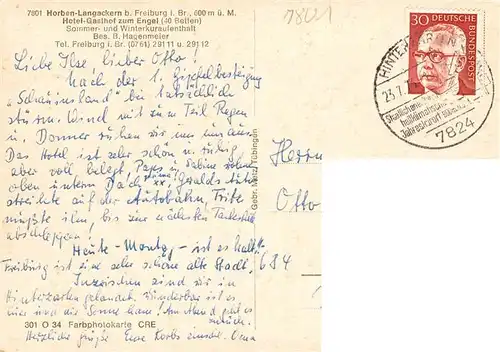 7801 Horben-Langackern b. Freiburg i. Br., 600 m ü. M.
Hotel-Gasthof zum Engel (40 Betten)
Sommer- und Winterkuraufenthalt
Bes. B. Hagenmeier
Tel. Freiburg i. Br. (0761) 29111 u. 29112
7801
30 DEUTSCHE BUNDESPOST
HINTERZARTEN
23.7.
Jahreskurort
7824
Liebe Ilse, lieber Otto!
Nach der 1. Gipfelbesteigung
"Schauinsland" bei
Sturm. Wind mit z. Teil Regen
u. Donner ruhen wir uns nun aus.
Das Hotel ist sehr schön u. ruhig,
aber voll belegt, Papa u. Sabine
oben unterm Dach. Geralds Auto
streikte auf der Autobahn,
ihn, bis zur nächsten Tankstelle
abschleppen!
Heute - Montag - ist es kalt.
Freiburg ist eine sehr schöne alte Stadt.
Inzwischen sind wir in
Hinterzarten gelandet. Wunderbar ist es
hier und die Sonne Am Abend geht es
zurück.
Herzliche Grüße
Herrn
Otto
684
Gebr. Metz, Tübingen
301 O 34 Farbphotokarte CRE